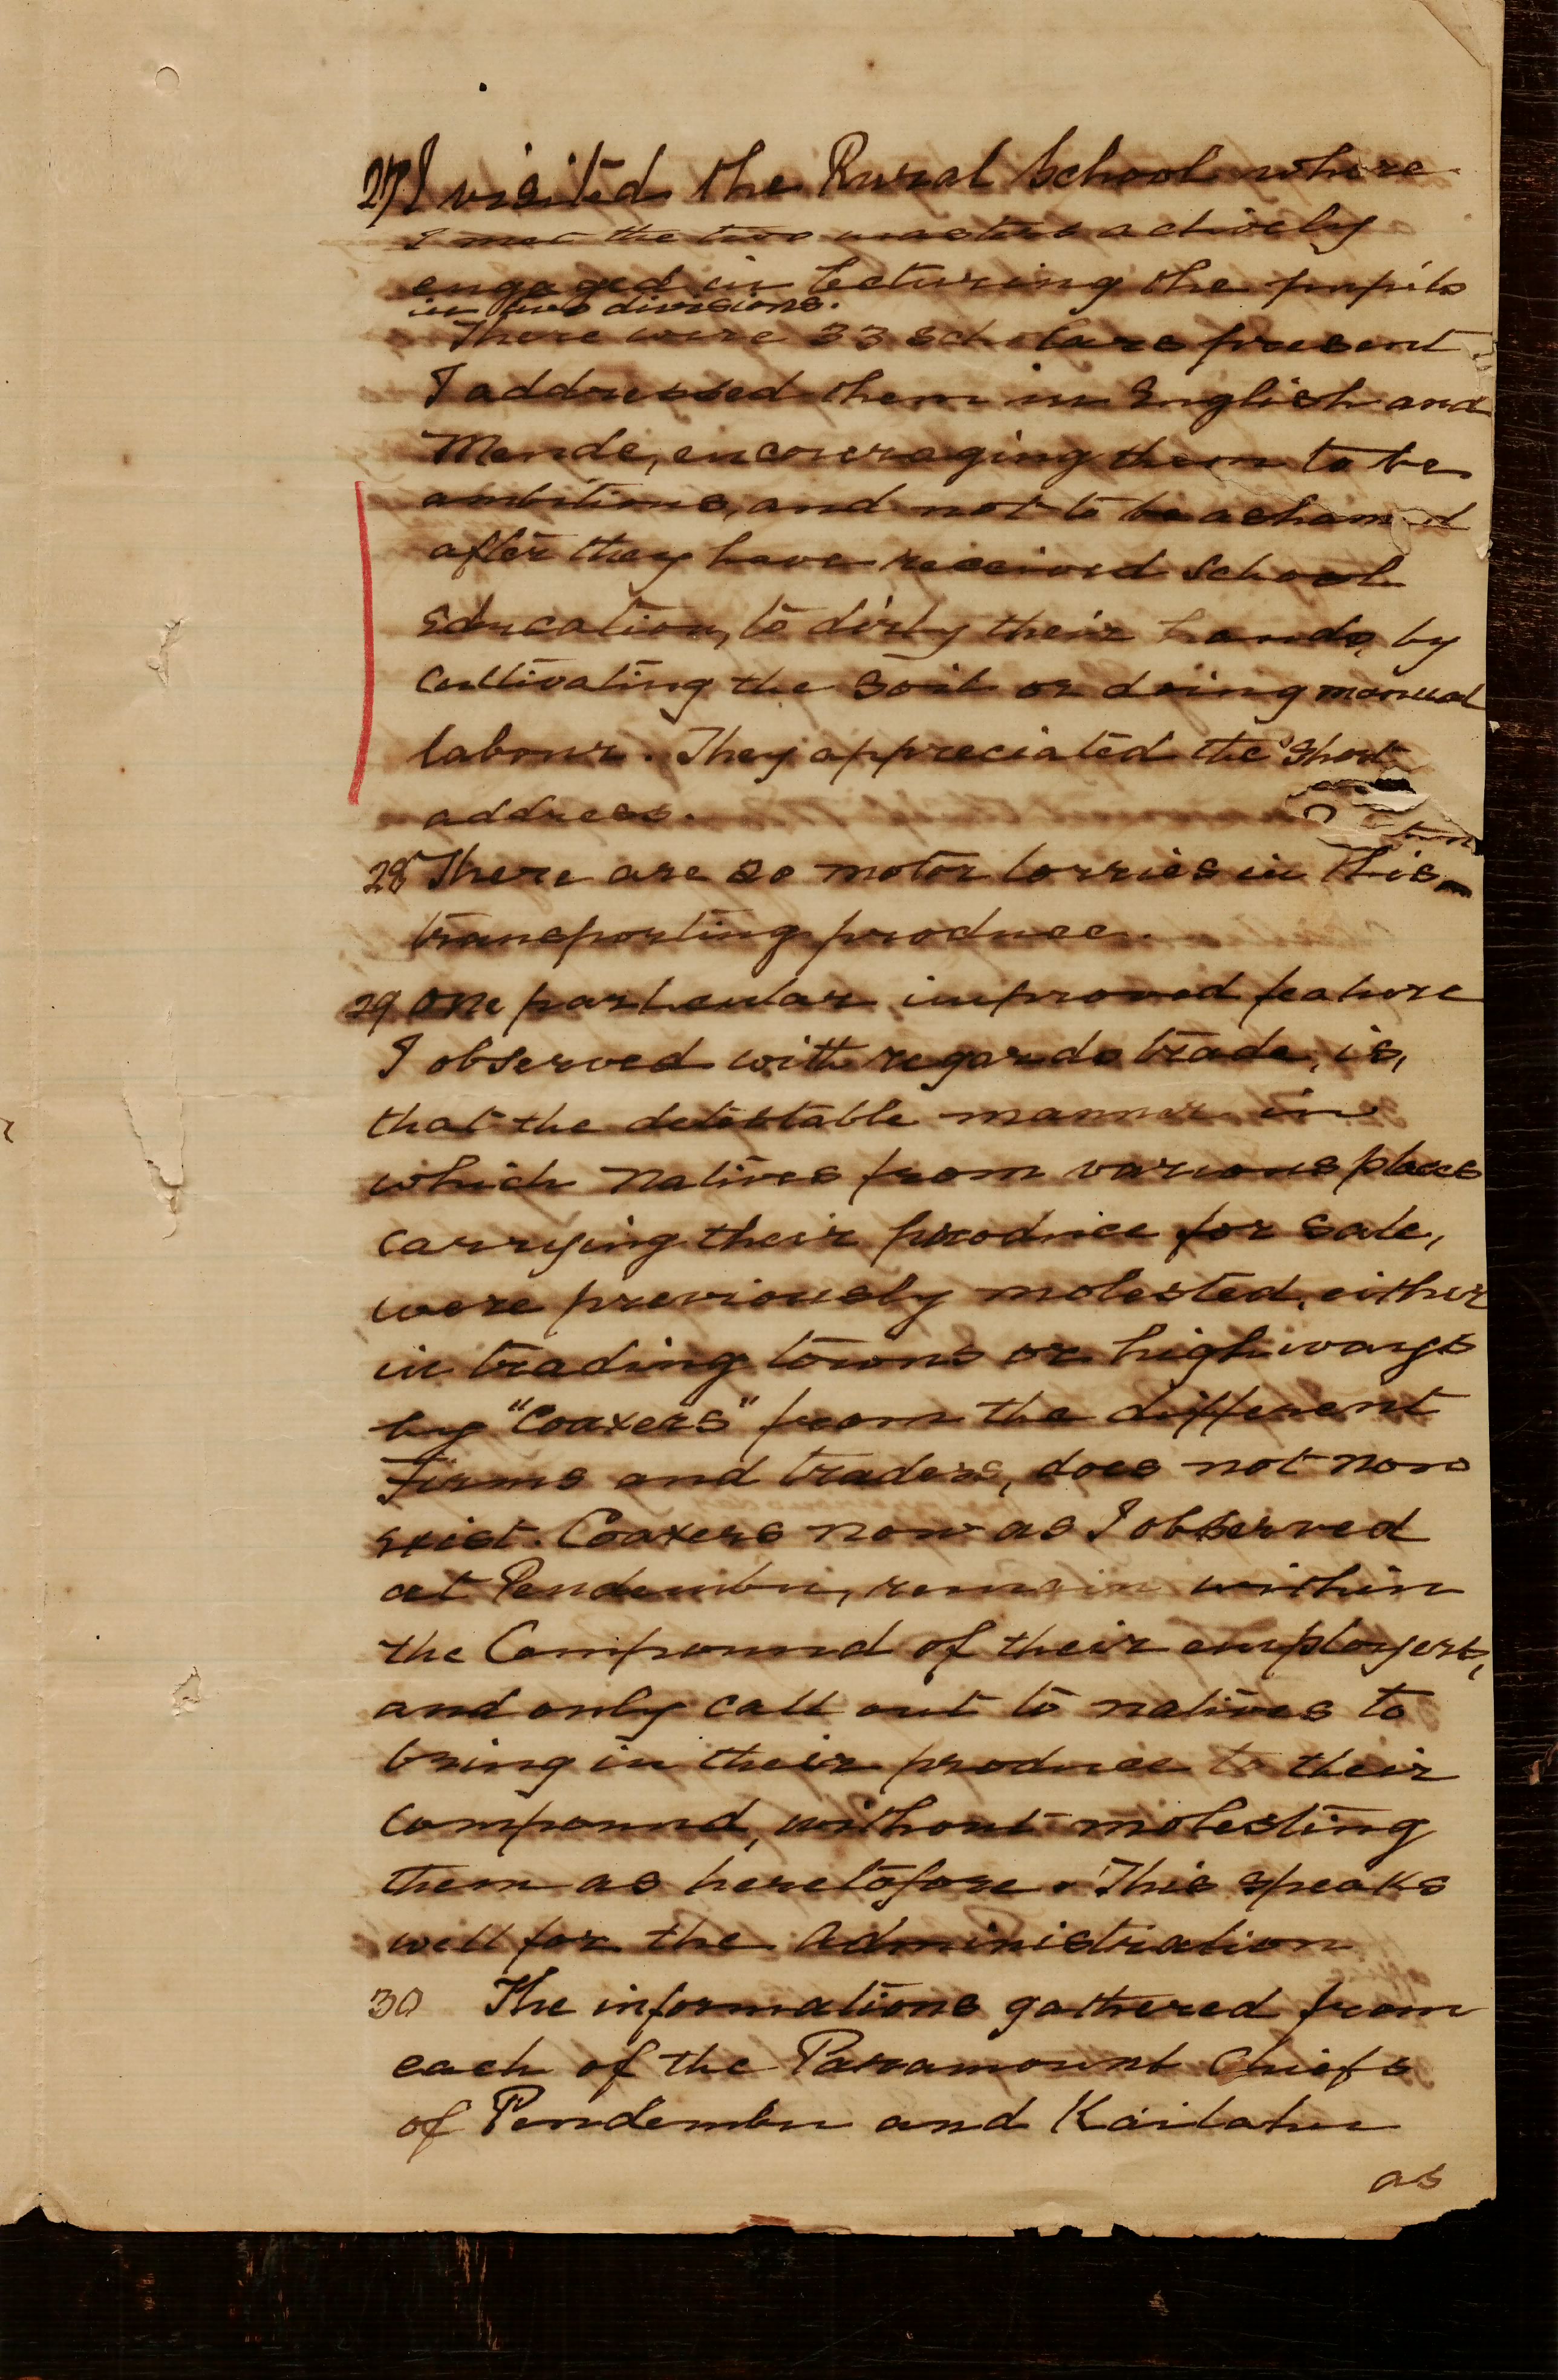 27 I visited the Rural School where
I met the two masters actively
engaged in lecturing the pupils
in two divisions.
There were 33 scholars present
I addressed them in English and
Mende, encouraging them to be
ambitious, and not to be ashamed
after they have received school
Education, to dirty their hands, by
Cultivating the Soil or doing manual
labour. They appreciated the short
address.
28 There are 20 motor lorries in this
transporting produce.
29 One particular improved feature
I observed with regards trade, is,
that the detestable manner in
which natives from various places
carrying their produce for sale,
were previously molested, either
in trading towns or highways
by "Coaxers" from the different
Firms and traders, does not now
exist. Coaxers now as I observed
at Pendembu, remain within
the Compound of their employers,
and only call out to natives to
bring in their produce to their
compound, without molesting
them as heretofore. This speaks
well for the Administration
30 The informations gathered from
each of the Paramount Chiefs
of Pendembu and Kailahu
as